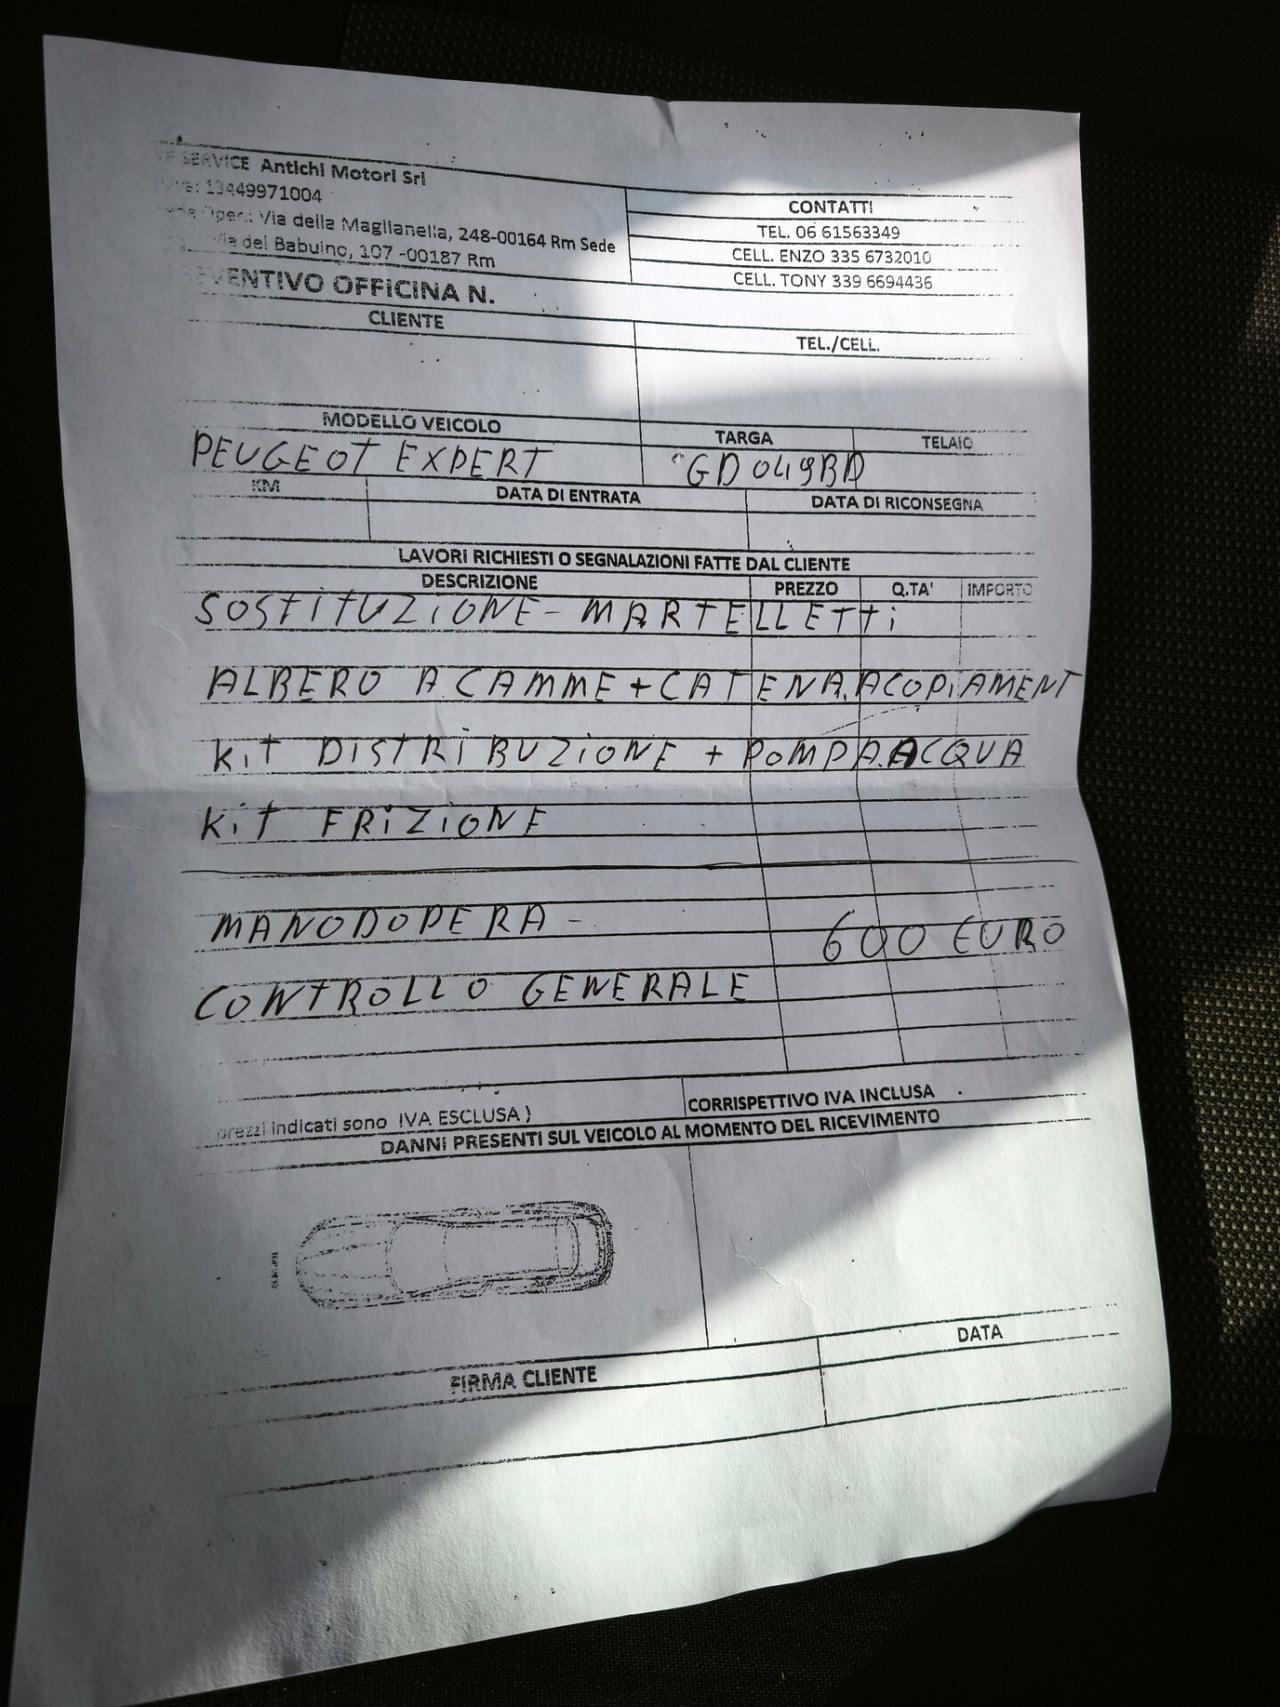 SERVICE Antichi Motori Srl
13449971004
Oper.: Via della Maglianella, 248-00164 Rm Sede
Via del Babuino, 107 -00187 Rm
CONTATTI
TEL. 06 61563349
CELL. ENZO 335 6732010
CELL. TONY 339 6694436
EVENTIVO OFFICINA N.
CLIENTE
TEL./CELL.
MODELLO VEICOLO
TARGA
TELAIO
PEUGEOT EXPERT
GD049BD
KM
DATA DI ENTRATA
DATA DI RICONSEGNA
LAVORI RICHIESTI O SEGNALAZIONI FATTE DAL CLIENTE
DESCRIZIONE PREZZO Q.TA' IMPORTO
SOSTITUZIONE - MARTELLETTI
ALBERO A CAMME + CATENA.ACOPIAMENT
KIT DISTRIBUZIONE + POMPA.ACQUA
KIT FRIZIONE
MANODOPERA -
600 EURO
CONTROLLO GENERALE
prezzi indicati sono IVA ESCLUSA )
CORRISPETTIVO IVA INCLUSA
DANNI PRESENTI SUL VEICOLO AL MOMENTO DEL RICEVIMENTO
FIRMA CLIENTE
DATA